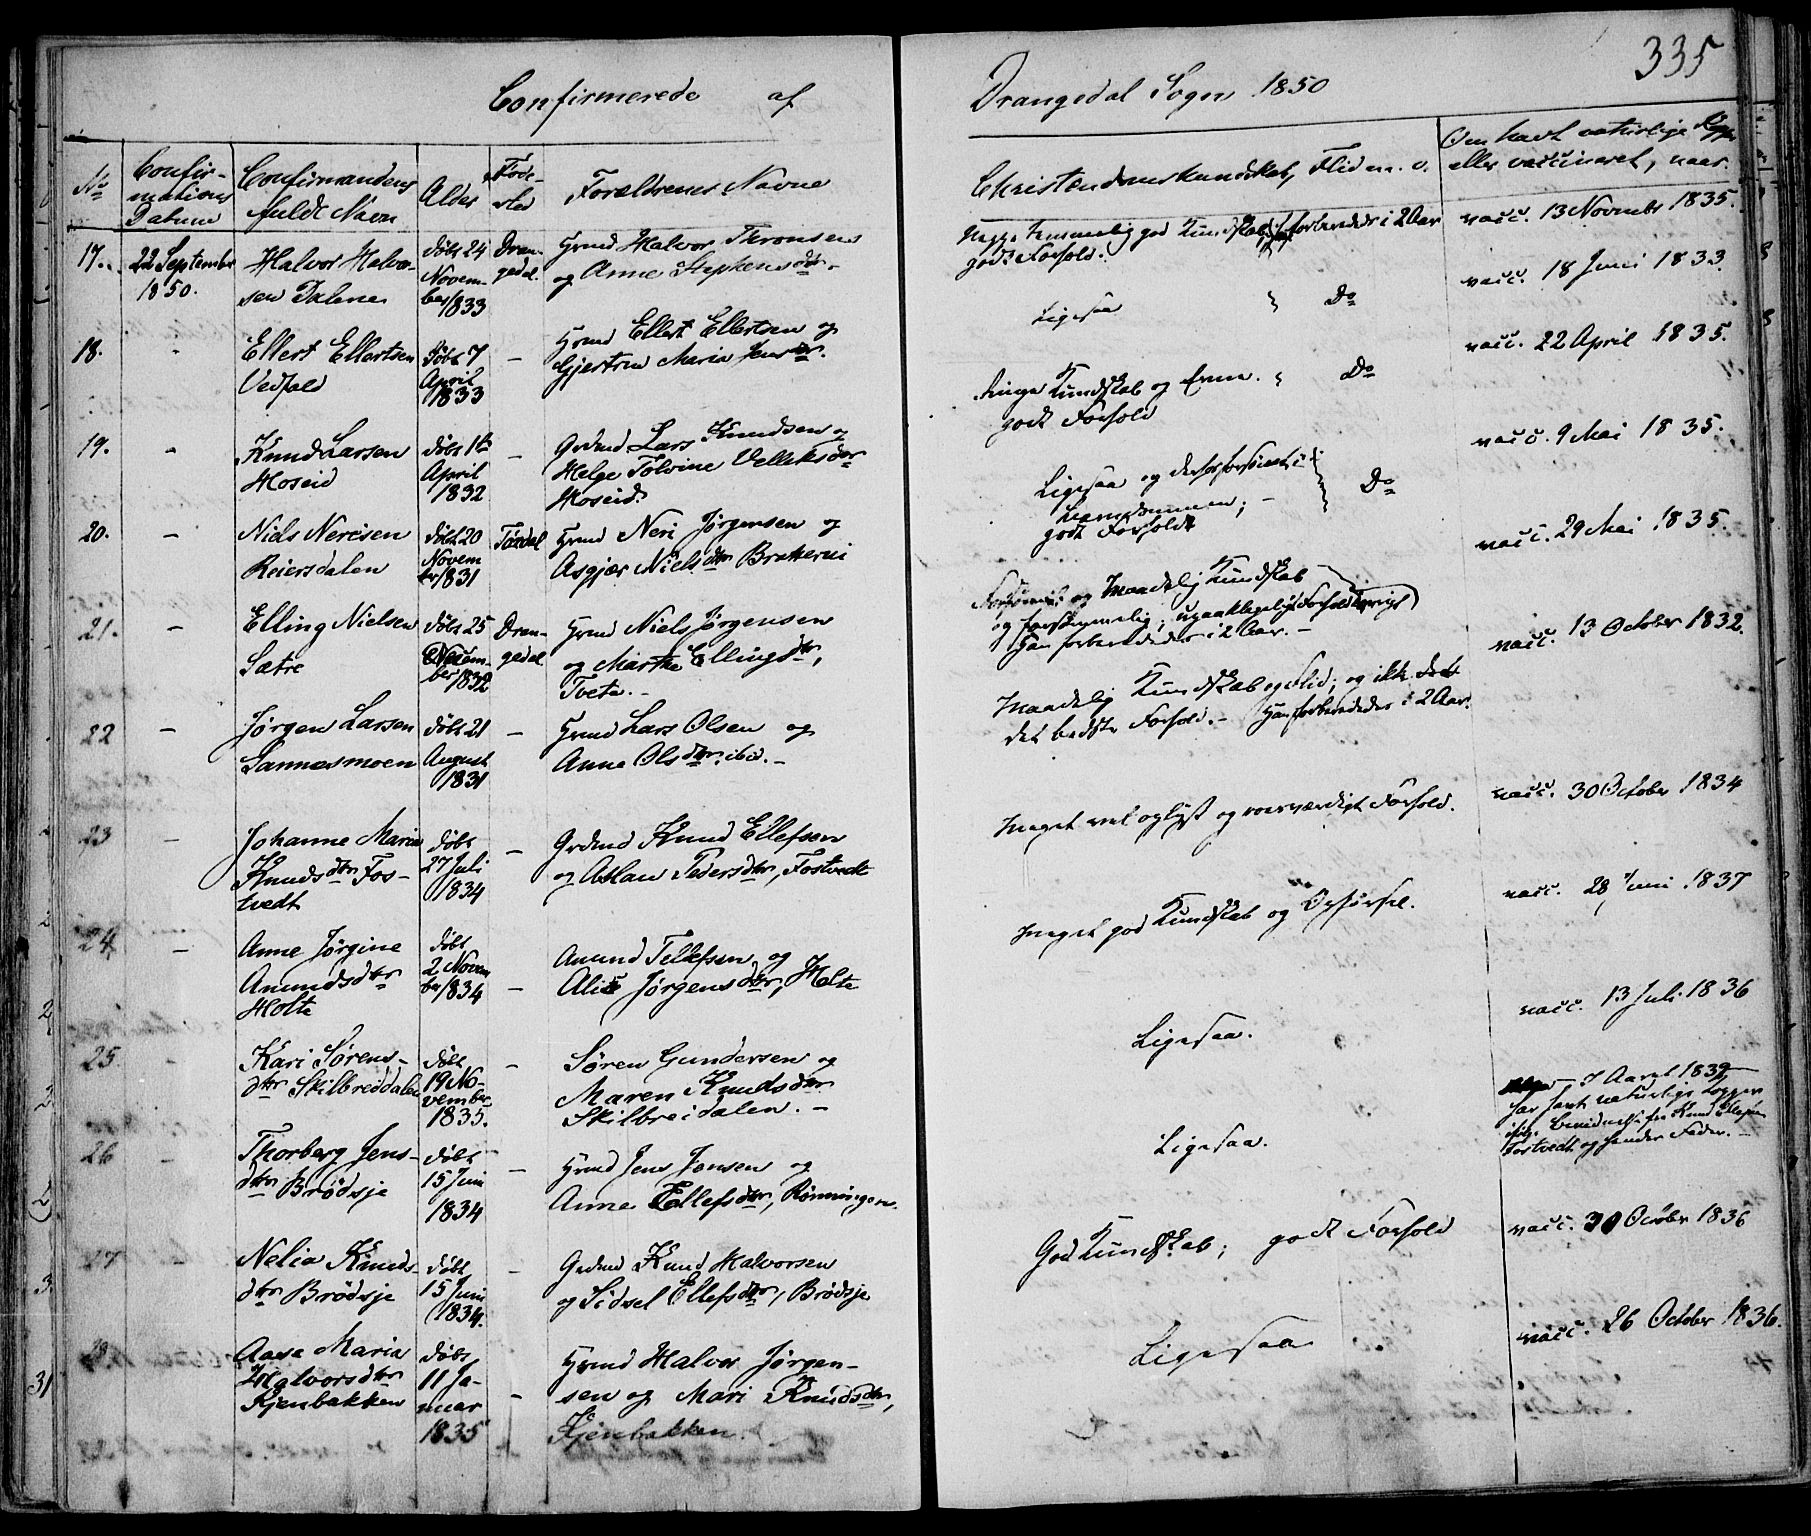 335
Confirmerede af Drangedal Sogn 1850
No
Confir-
mations
Datum
Confirmandens
fulde Navn
Alder
Føde-
sted
Forældrenes Navne
Christendomskundskab, Flid m. v.
Om havt naturlige Kopper
eller vaccineret, naar.
17. 22 September
1850.
Halvor Halvor-
sen Dalene
døbt 24
Novem-
ber 1833
Dran-
gedal
Grmd Halvor Thronsen
og Anne Stephensdtr.
godt Forhold.
vacc. 13 Novembr 1835.
18. -
Ellert Ellertsen
Vedfald
døbt 7
April
1833
-
Grmd Ellert Ellertsen og
Gjertrud Maria Jensdtr.
Ligesaa Do
vacc. 18 Juni 1833.
19. -
Knud Larsen
Hoseid
døbt
April
1832
-
Grdmd Lars Knudsen og
Helge Tolvine Velleksdtr
Hoseid.
ringe Kundskab og Evne.
godt Forhold
Do
vacc. 22 April 1835.
20. -
Niels Nerisen
Reiersdalen
døbt 20
Novem
ber 1831
Tørdal
Grmd Neri Jørgensen og
Asgjær Nielsdtr
Ligesaa og
godt Forhold
Do
vacc. 9 Mai 1835.
21. -
Elling Nielsen
Sætre
døbt 25
Decem-
ber 1832
Dran-
gedal
Grmd Niels Jørgensen
og Marthe Ellingsdtr,
Tveta.-
og Maadelig Kundskab
han forberededes i 2 Aar.-
vacc. 29 Mai 1835.
22 -
Jørgen Larsen
Sannesmoen
døbt 21
August
1831
-
Grmd Lars Olsen og
Anne Olsdtr. ibid.-
Maadelig Kundskab og Flid; og ikke
det bedste Forhold.- Han forberededes i 2 Aar.
vacc. 13 October 1832.
23 -
Johanne Maria
Knudsdtr Fos-
tvedt
døbt
27 Juli
1834
-
Grdmd Knud Ellefsen
og Aslau Pedersdtr, Fostvedt
meget vel oplyst og roesværdigt Forhold.
vacc. 30 October 1834
24. -
Anne Jørgine
Amundsdtr
Holte
døbt
2 Novem
ber 1834
-
Amund Tellefsen og
Alice Jørgensdtr, Holte
meget god Kundskab og Opførsel.
vacc. 28 Juni 1837
25. -
Kari Sørens-
dtr Skilbreddalen
døbt
19 No-
vember
1835.
-
Søren Gundersen og
Maren Knudsdtr
Skilbreidalen.-
Ligesaa.
vacc. 13 Juli 1836
26 -
Thorberg Jens-
dtr Brødsje
døbt
15 Juni
1834
-
Grmd Jens Jensen og
Anne Tellefsdtr, Rønningen.
Ligesaa.
I Aaret 1839
har havt naturlige Kopper
Knud Ellefsen
Fostvedt og hendes Fader.-
27 -
Nelia Knuds-
dtr Brødsje
døbt
15 Juni
1834.
-
Grdmd Knud Halvorsen
og Sidsel Ellefsdtr, Brødsje
God Kundskab; godt Forhold
vacc. 30 Octobr 1836
28
Aase Maria
Halvorsdtr
Kjenbakken
døbt
11 Ja-
nuar
1835
-
Grmd Halvor Jørgen-
sen og Mari Knudsdtr,
Kjenbakken.
Ligesaa
vacc. 26 October 1836.